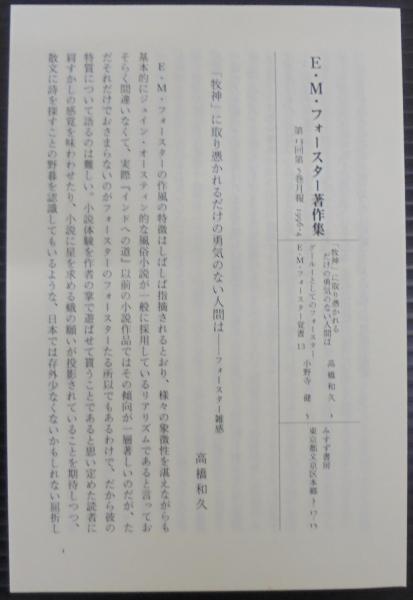 E・M・フォースター著作集
第12回第5巻月報 1996・4
「牧神」に取り憑かれる
だけの勇気のない人間は 高橋和久 1
グールーとしてのフォースター
E・M・フォースター覚書 13 小野寺 健 5
みすず書房
東京都文京区本郷 3-17-15
「牧神」に取り憑かれるだけの勇気のない人間は——フォースター雑感
高橋和久
E・M・フォースターの作風の特徴はしばしば指摘されるとおり、様々の象徴性を湛えながらも
基本的にジェイン・オースティン的な風俗小説が一般に採用しているリアリズムであると言ってお
そらく間違いなくて、実際『インドへの道』以前の小説作品ではその傾向が一層著しいのだが、た
だそれだけでおさまらないのがフォースターのフォースターたる所以でもあるわけで、だから彼の
特質について語るのは難しい。小説体験を作者の掌で遊ばせて貰うことであると思い定めた読者に
肩すかしの感覚を味わわせたり、小説に星を求める蛾の願いが投影されていることを期待しつつ、
散文に詩を探すことの野暮を認識してもいるような、日本では存外少なくないかもしれない屈折し
1